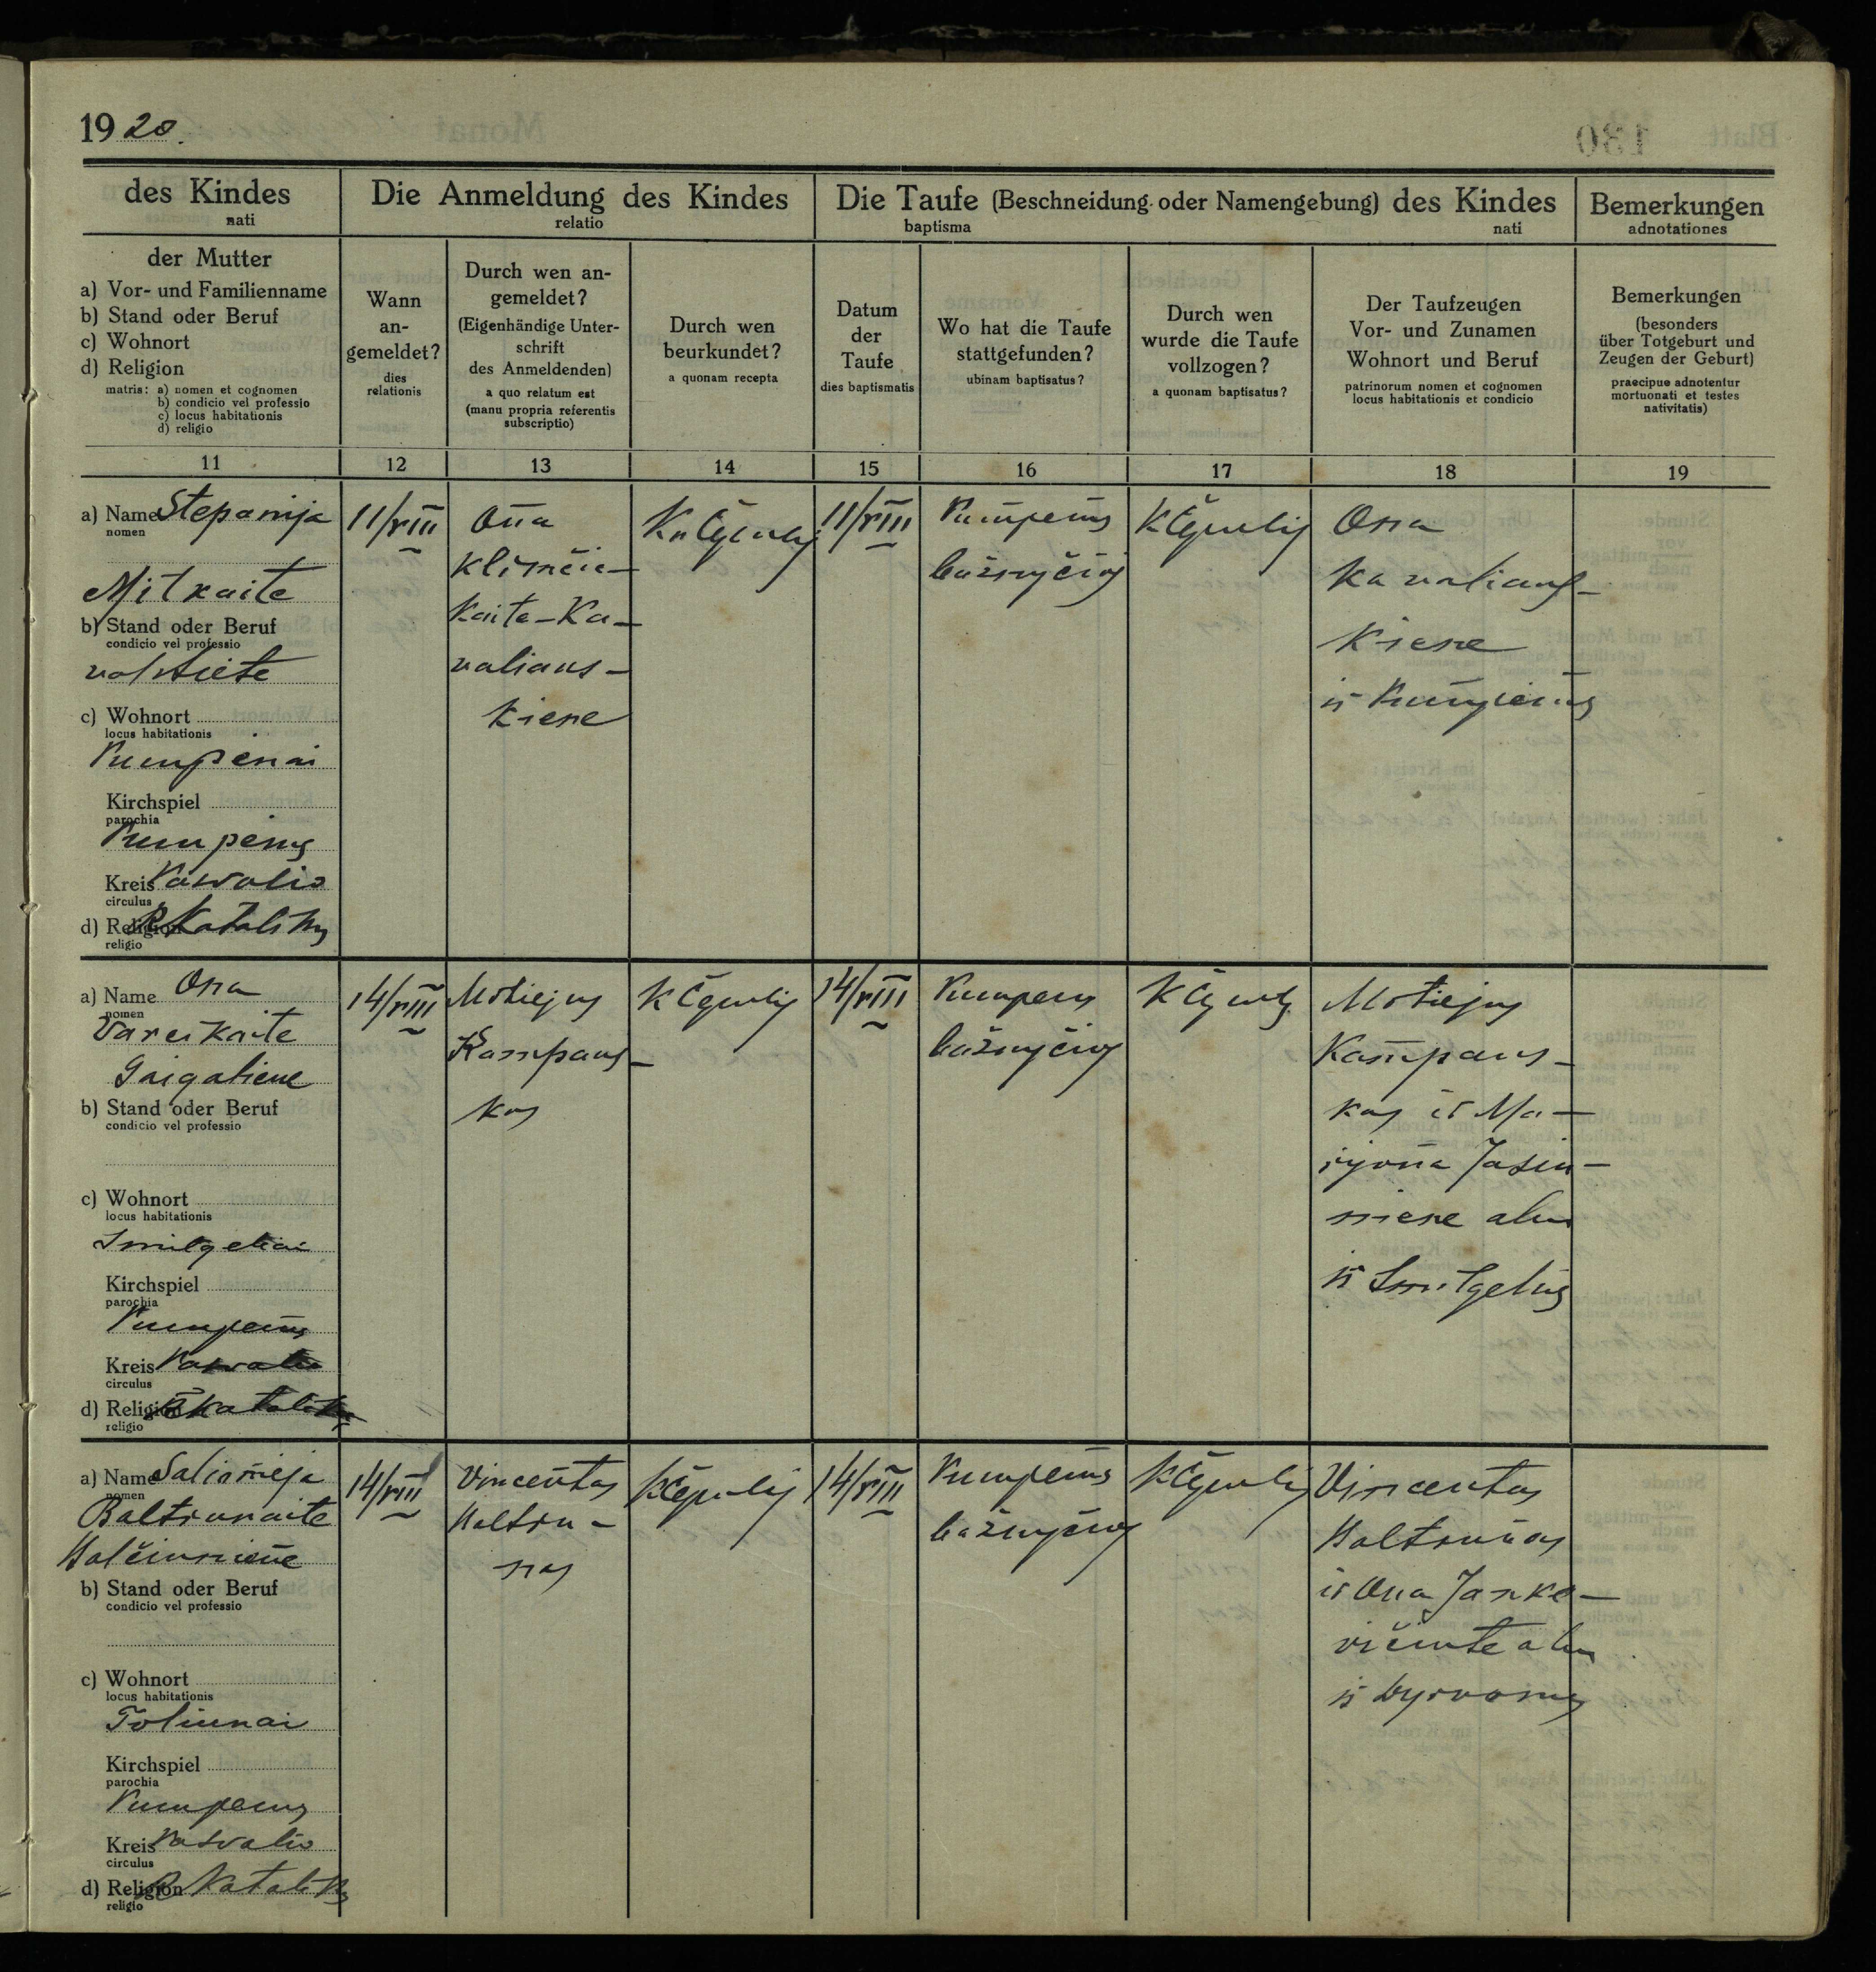 1920.
130
Blatt
Monat
des Kindes
nati
Die Anmeldung des Kindes
relatio
Die Taufe (Beschneidung oder Namengebung) des Kindes
baptisma nati
Bemerkungen
adnotationes
der Mutter
a) Vor- und Familienname
b) Stand oder Beruf
c) Wohnort
d) Religion
matris: a) nomen et cognomen
b) condicio vel professio
c) locus habitationis
d) religio
Wann
an-
gemeldet?
dies
relationis
Durch wen an-
gemeldet?
(Eigenhändige Unter-
schrift
des Anmeldenden)
a quo relatum est
(manu propria referentis
subscriptio)
Durch wen
beurkundet?
a quonam recepta
Datum
der
Taufe
dies baptismatis
Wo hat die Taufe
stattgefunden?
ubinam baptisatus?
Durch wen
wurde die Taufe
vollzogen?
a quonam baptisatus?
Der Taufzeugen
Vor- und Zunamen
Wohnort und Beruf
patrinorum nomen et cognomen
locus habitationis et condicio
Bemerkungen
(besonders
über Totgeburt und
Zeugen der Geburt)
praecipue adnotentur
mortuonati et testes
nativitatis)
11 12 13 14 15 16 17 18 19
a) Name Stepanija
nomen
Mitkaite
b) Stand oder Beruf
condicio vel professio
valstiete
c) Wohnort
locus habitationis
Pumpenai
Kirchspiel
parochia
Pumpenų
Kreis Pasvalio
circulus
d) Religion R Katalikų
religio
11/VIII
Ona
Klimčia-
kaite-Ka-
valiaus-
kiene
11/VIII
Pumpenų
bažnyčioj
Ona
Kavaliaus-
kiene
iš Pumpienų
a) Name Ona
nomen
Vareikaite
Gaigaliene
b) Stand oder Beruf
condicio vel professio
c) Wohnort
locus habitationis
Smilgeliai
Kirchspiel
parochia
Pumpenų
Kreis Pasvalio
circulus
d) Religion R Katalikų
religio
14/VIII
Motiejus
Kampaus-
kas
14/VIII
Pumpenų
bažnyčioj
Motiejus
Kampaus-
kas ir Ma-
rijona Jasiu-
niene abu
iš Smilgelių
a) Name Saliomeja
nomen
Baltrunaite
Balčiuniene
b) Stand oder Beruf
condicio vel professio
c) Wohnort
locus habitationis
Toliunai
Kirchspiel
parochia
Pumpenų
Kreis Pasvalio
circulus
d) Religion R Katalikų
religio
14/VIII
Vincentas
Baltru-
nas
14/VIII
Pumpenų
bažnyčioj
Vincentas
Baltrunas
ir Ona Janke-
vičiute abu
iš Dyrvonų